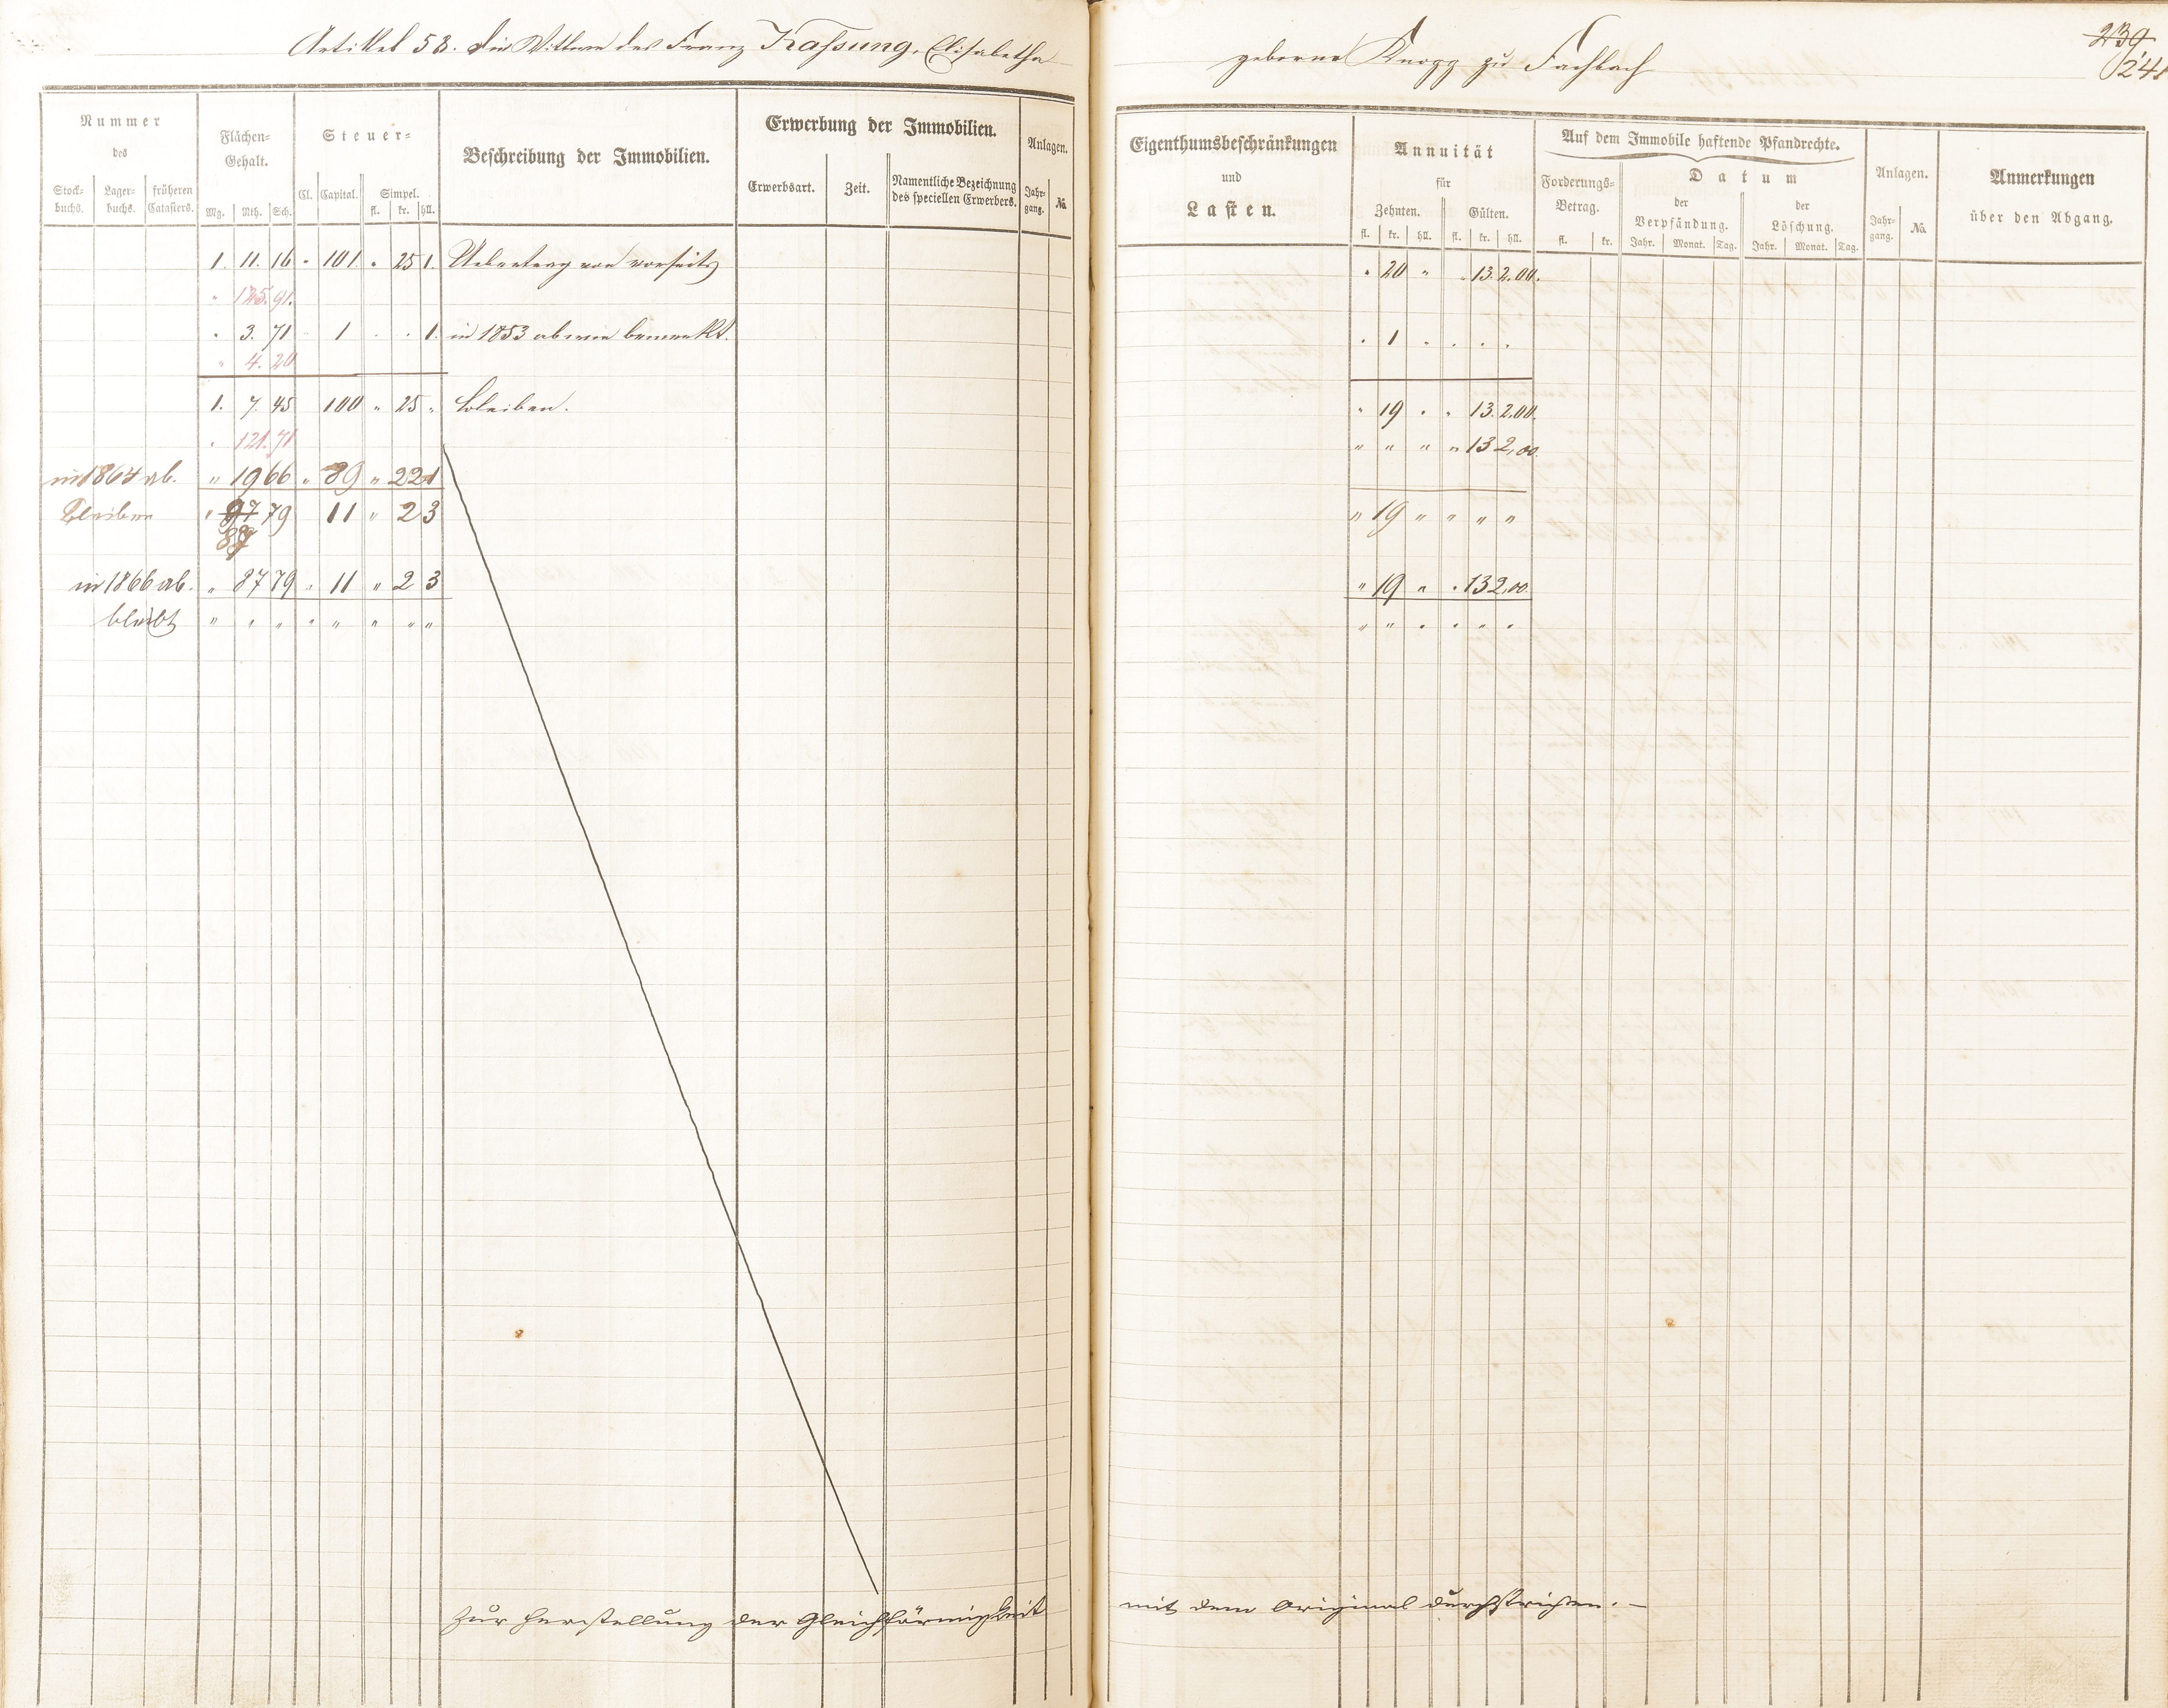 Artikel 58. die Wittwe des Franz Kaßung, Elisabetha geborne Knopp zu Fachbach
239
241
Nummer
des
Stock-
buchs.
Lager-
buchs.
früheren
Catasters.
Flächen-
Gehalt.
Mg. Rth. Sch.
Steuer-
Cl. Capital. Simpel.
fl. kr. hll.
Beschreibung der Immobilien.
Erwerbung der Immobilien.
Erwerbsart. Zeit. Namentliche Bezeichnung
des speciellen Erwerbers.
Anlagen.
Jahr-
gang. No.
Eigenthumsbeschränkungen
und
Lasten.
Annuität
für
Zehnten. Gülten.
fl. kr. hll. fl. kr. hll.
Auf dem Immobile haftende Pfandrechte.
Forderungs-
Betrag.
fl. kr.
Datum
der
Verpfändung.
Jahr. Monat. Tag.
der
Löschung.
Jahr. Monat. Tag.
Anlagen.
Jahr-
gang. No.
Anmerkungen
über den Abgang.
1. 11. 16 " 101. " 25 1. Uebertrag von vorseits " 20 " " 13. 2.00.
" 125. 91.
" 3. 71 " 1 " " 1. in 1853 ab wie bemerkt. " 1 " " " "
" 4. 20
1. 7. 45 100 " 25 " bleiben. " 19 " " 13. 2.00.
" 121. 71 " " " " 13 2,00.
in 1864 ab. " 19 66 " 89 " 22 1
bleiben " 97 79 11 " 2 3 " 19 " " " "
87
in 1866 ab. " 87 79 " 11 " 2 3 " 19 " " 13 2,00.
bleibt " " " " " " " " " " " " " "
Zur Herstellung der Gleichförmigkeit mit dem Original durchstrichen. —